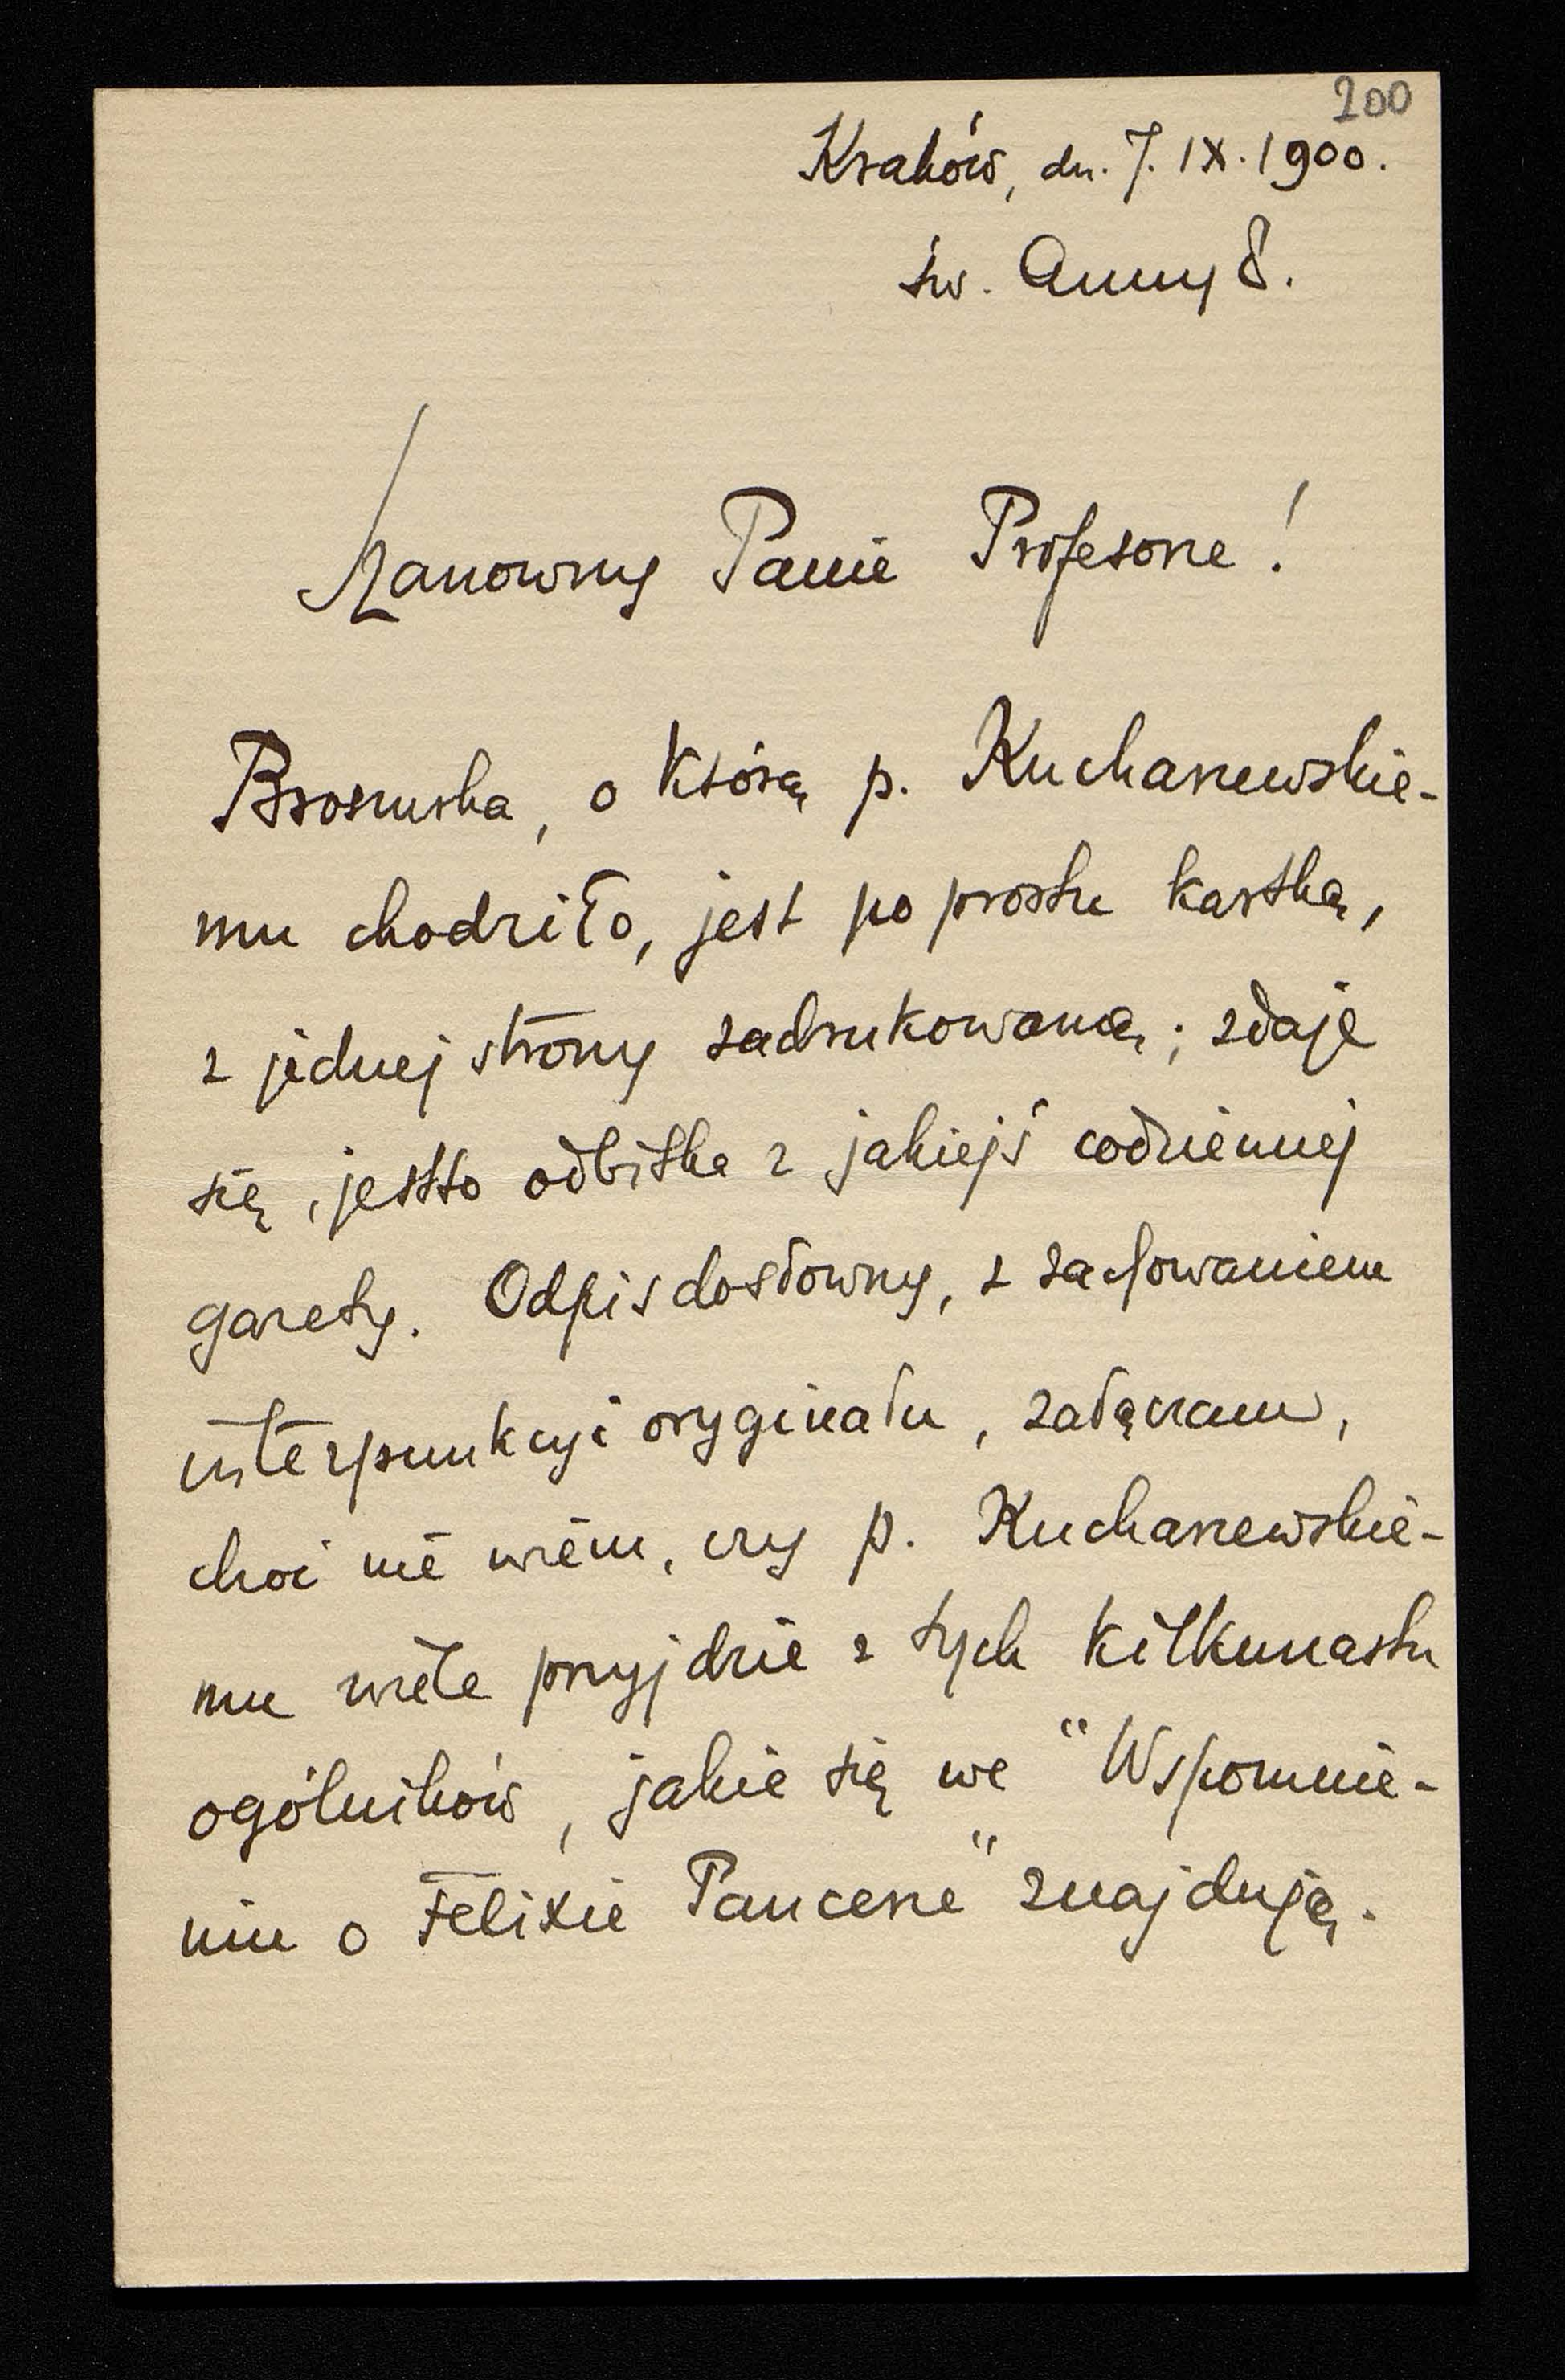 200
Kraków, dn. 7. IX. 1900.
św. Anny 8.
Szanowny Panie Profesorze!
Broszurka, o którą p. Kucharzewskie-
mu chodziło, jest po prostu kartką,
z jednej strony zadrukowaną; zdaje
się, jestto odbitka z jakiejś codziennej
gazety. Odpis dosłowny, z zachowaniem
interpunkcyi oryginału, załączam,
choć nie wiem, czy p. Kucharzewskie-
mu wiele przyjdzie z tych kilkunastu
ogólników, jakie się we "Wspomnie-
niu o Felixie Pancerze" znajdują.